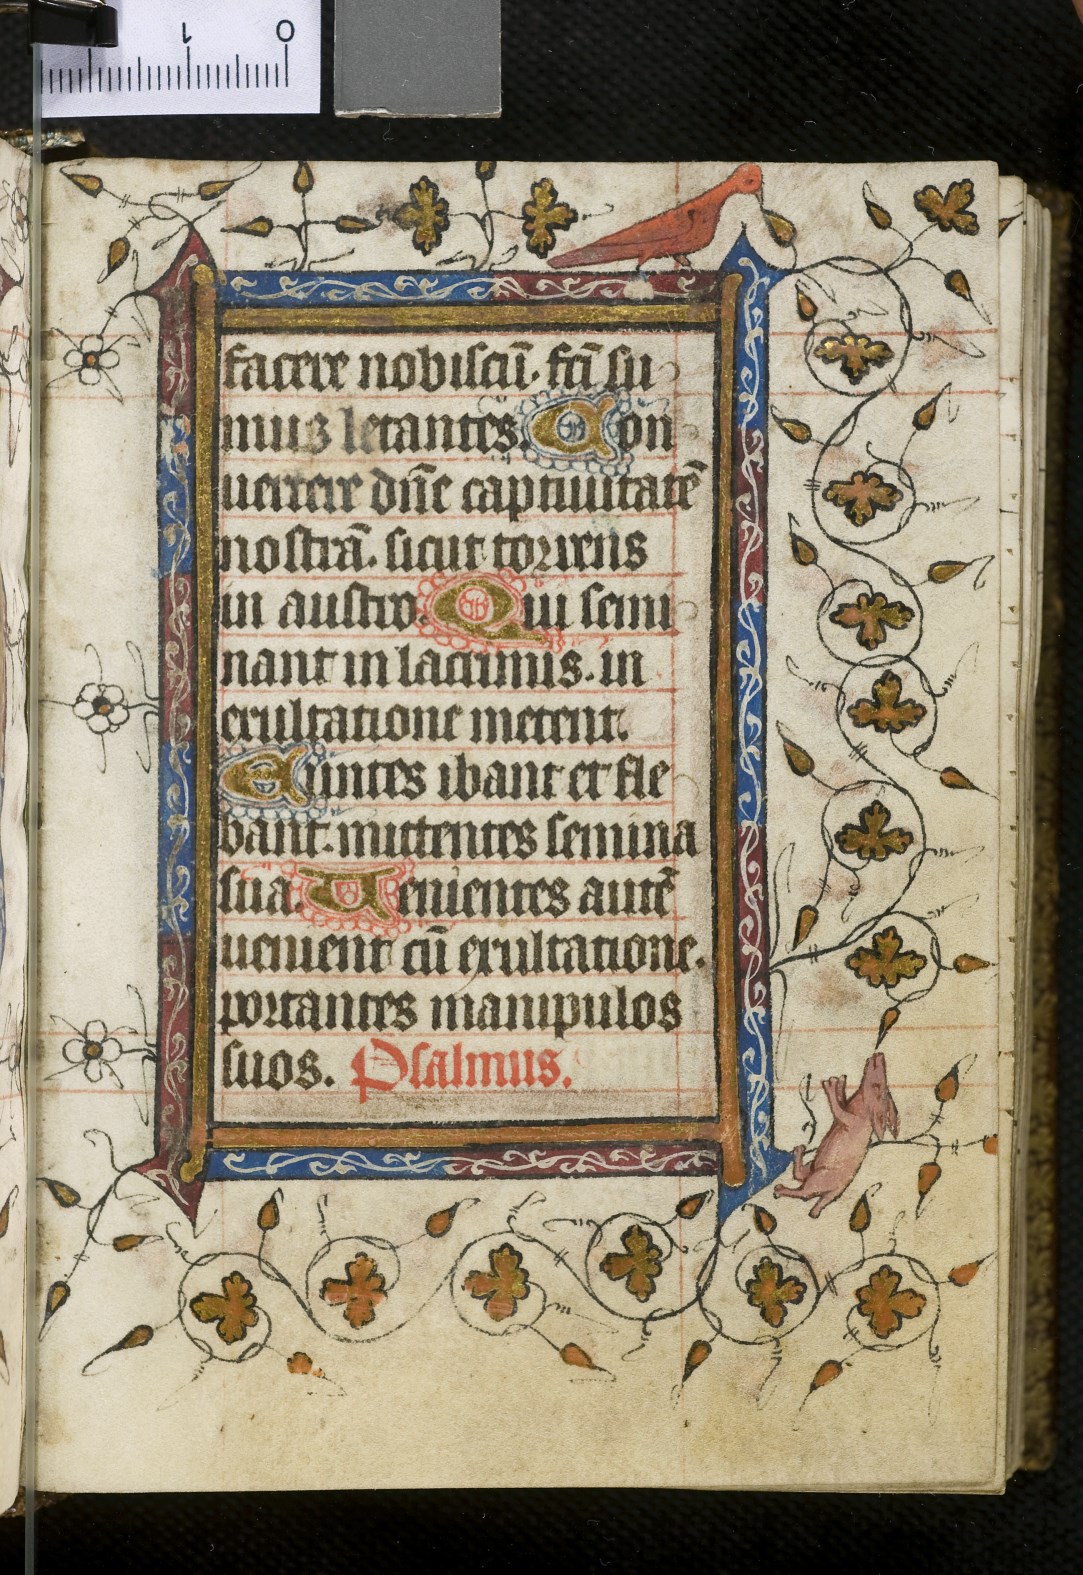 1 0
facere nobiscū. fcī su
mus letantes. Con
uertere dn̄e captiuitatē
nostrā. sicut torrens
in austro. Qui semi
nant in lacrimis. in
exultatione metent.
Euntes ibant et fle
bant. mittentes semina
sua. Uenientes autē
uenient cū exultatione.
portantes manipulos
suos. Psalmus.